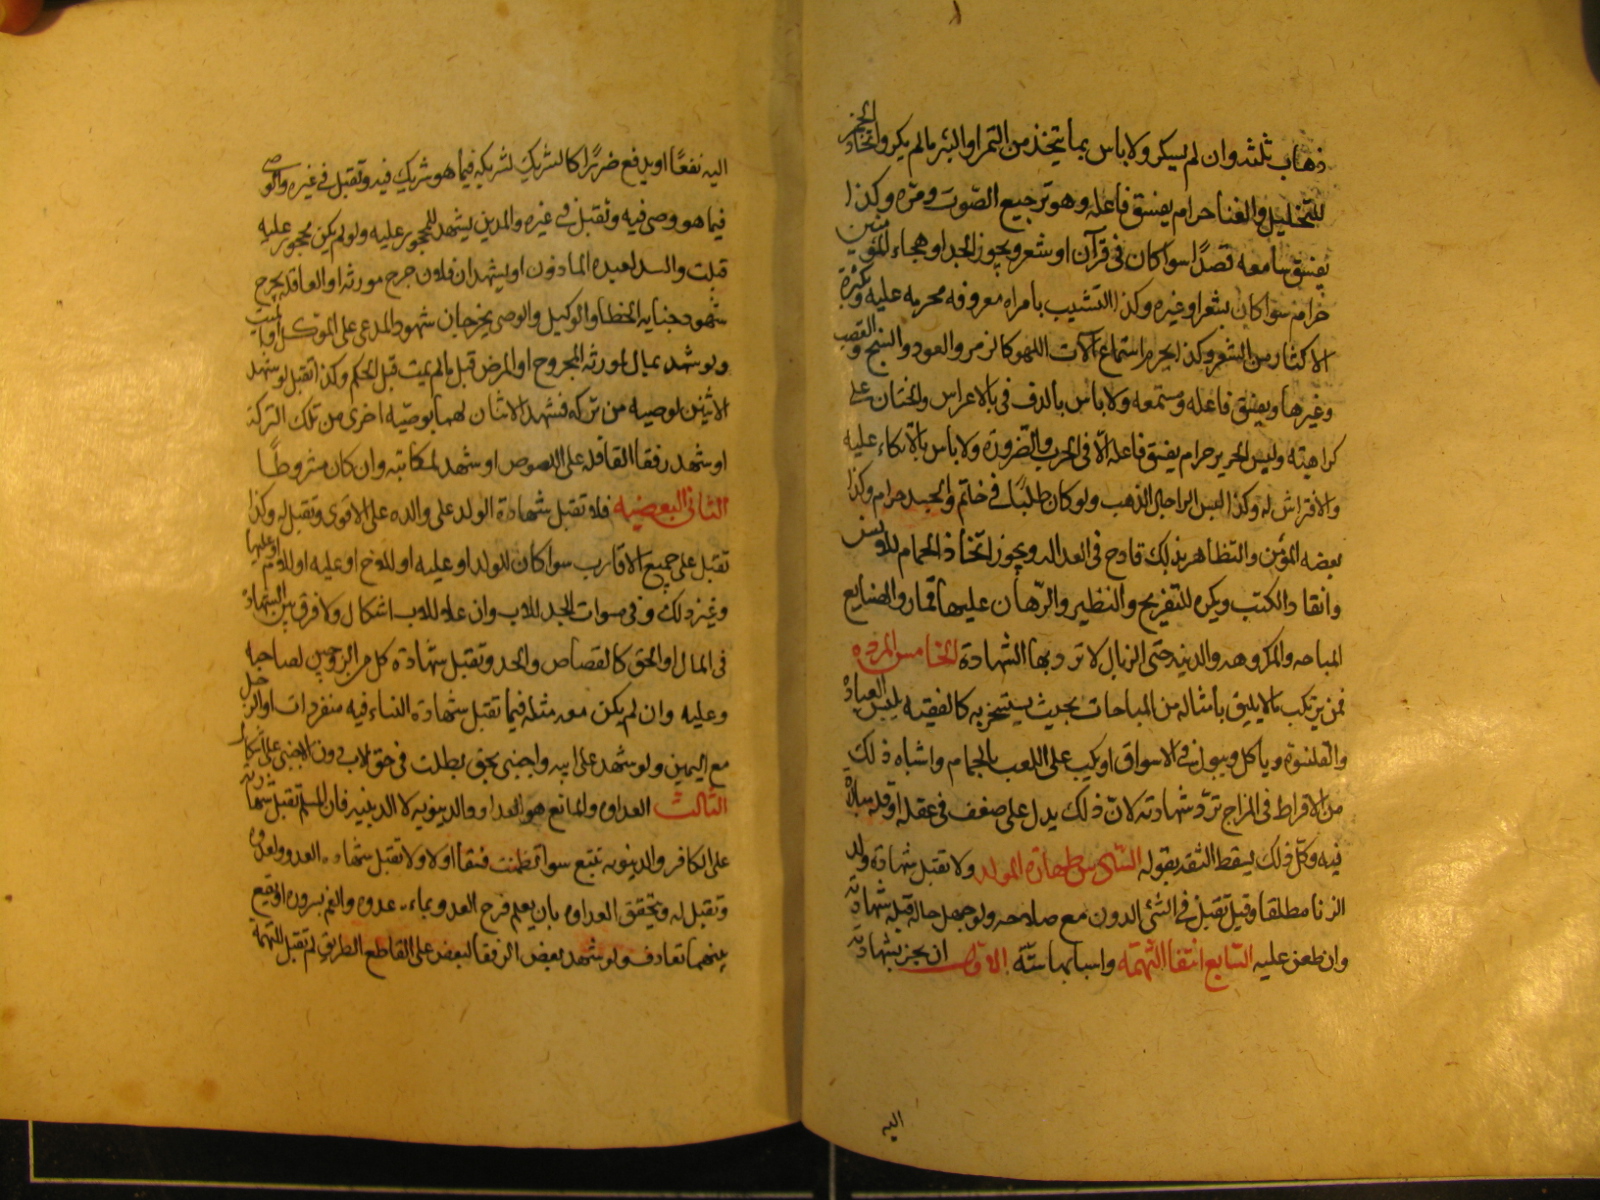 ذهاب ثلثه وان لم يسكر ولا باس بما يتخذ من التمر او البسر مالم يسكر واتخاذ الخمر
للتخليل والغناء حرام يفسق فاعله وهو ترجيع الصوت ومده وكذا
يفسق سامعه قصدًا سوا كان في قرآن او شعر ويجوز الحدا وهجاء المؤمنين
حرام سوا كان بشعر او غيره وكذا التشبيب بامراه معروفه محرمه عليه ويكره
الاكثار من الشعر وكذا يحرم استماع آلات اللهو كالزمر والعود والصنج والقصب
وغيرها ويفسق فاعله ومستمعه ولا باس بالدف في الاعراس والختان على
كراهيته ولبس الحرير حرام يفسق فاعله الّا في الحرب والضرورة ولا باس بالاتكاء عليه
والافتراش له وكذا لبس الرجال الذهب ولو كان طليًا في خاتم والحسد حرام وكذا
بغضه المؤمن والتظاهر بذلك قادح في العداله ويجوز اتخاذ الحمام للانس
وانفاذ الكتب ويكره للتفريح والتطير والرّهان عليها قمار والصنايع
المباحه والمكروهه والدنيه حتى الزبال لا ترد بها الشهادة الخامس المروه
فمن يرتكب مالا يليق بامثاله من المباحات بحيث يستسخر به كالفقيه يلبس القباء
والقلنسوة وياكل ويبول في الاسواق او يكب على اللعب بالحمام واشباه ذلك
من الافراط في المزاج تردّ شهادته لانّ ذلك يدل على ضعف في عقله او قله مبالاة
فيه وكلّ ذلك يسقط الثقه بقوله السادس طهارة المولد ولا تقبل شهادة ولد
الزنا مطلقا وقيل تقبل في الشئ الدون مع صلاحه ولو جهل حاله قبله شهادته
وان طعن عليه السابع انتفا التهمه واسبابها ستّه الاوّل ان يجر بشهادته
اليه
اليه نفعًا او يدفع ضررًا كالشريك لشريكه فيما هو شريك فيه وتقبل في غيره والوصى
فيما هو وصى فيه وتقبل في غيره والمدين يشهد للمحجور عليه ولو لم يكن محجور عليه
قبلت والسيد لعبده الماذون او يشهد ان فلان جرح مورثه او العاقله بجرح
شهود جنايه الخطا والوكيل والوصى يجرحان شهود المدعى على الموكل او الميت
ولو شهد بمال لمورثه المجروح او المرض قبل مالم يمت قبل الحكم وكذا تقبل لو شهد
لاثنين بوصيه من تركه فشهد الاثنان لهما بوصيّه اخرى من تلك التركة
او شهد رفقا القافله على اللصوص او شهد لمكاتبه وان كان مشروطًا
الثانى البعضيه فلا تقبل شهادة الولد على والده على الاقوى وتقبل له وكذا
تقبل على جميع الاقارب سوا كان للولد او عليه او للاخ او عليه او للام او عليها
وغير ذلك وفي مساوات الجد للاب وان علا للاب اشكال ولا فرق بين الشهادة
في المال او الحق كالقصاص والحد وتقبل شهادة كل من الزوجين لصاحبه
وعليه وان لم يكن معه مثله فيما تقبل شهادة النساء فيه منفردات او الرجل
مع اليمين ولو شهد على ابيه واجنبى بحق بطلت في حق الاب دون الاجنبى على اشكال
الثالث العداوه والمانع هو العداوه الدنيويه لا الدينيه فان المسلم تقبل شهادته
على الكافر والدنيويه تمنع سوا تضمنت فسقا او لا ولا تقبل شهاده العدو ولعدوه
وتقبل له وتحقق العداوه بان يعلم فرح العدو بمساءة عدوه والغم بسروره او يقع
بينهما تقاذف ولو شهد بعض الرفقا لبعض على القاطع الطريق لم تقبل للتهمة